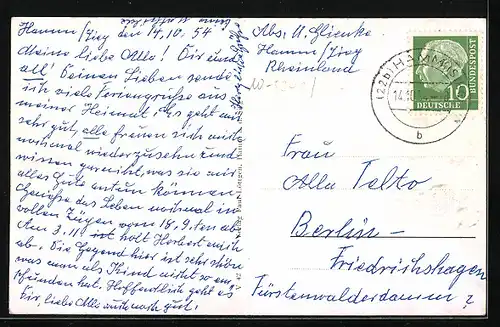 Hamm/Sieg den 14.10.54
Meine liebe Alla! Dir und
all' Deinen Lieben sende
ich viele Feriengrüße aus
meiner Heimat. Es geht mir
sehr gut, alle freuen sich mich
nochmal wiederzusehn und
wissen garnicht, was sie mir
alles Gute antun können.
Genieße das Leben nochmal in
vollen Zügen vom 18.9. ten ab.
Am 3.11. holt Herbert mich
ab. Die Gegend hier ist sehr schön
was man als Kind nicht so em-
pfunden hat. Hoffentlich geht es
Dir, liebe Alla auch noch gut.
Abs. M. Glienke
Hamm/Sieg
Rheinland
(22b) HAMM (SIEG)
14.10
b
DEUTSCHE
BUNDESPOST
10
Frau
Alla Telto
Berlin-
Friedrichshagen
Fürstenwalderdamm ?